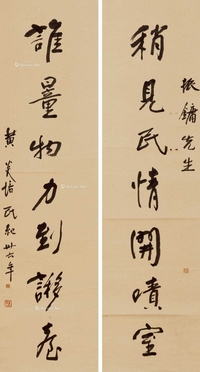 振鏞先生
稍見民情開嘖室
誰量物力到謻臺
黃炎培 民紀卅六年